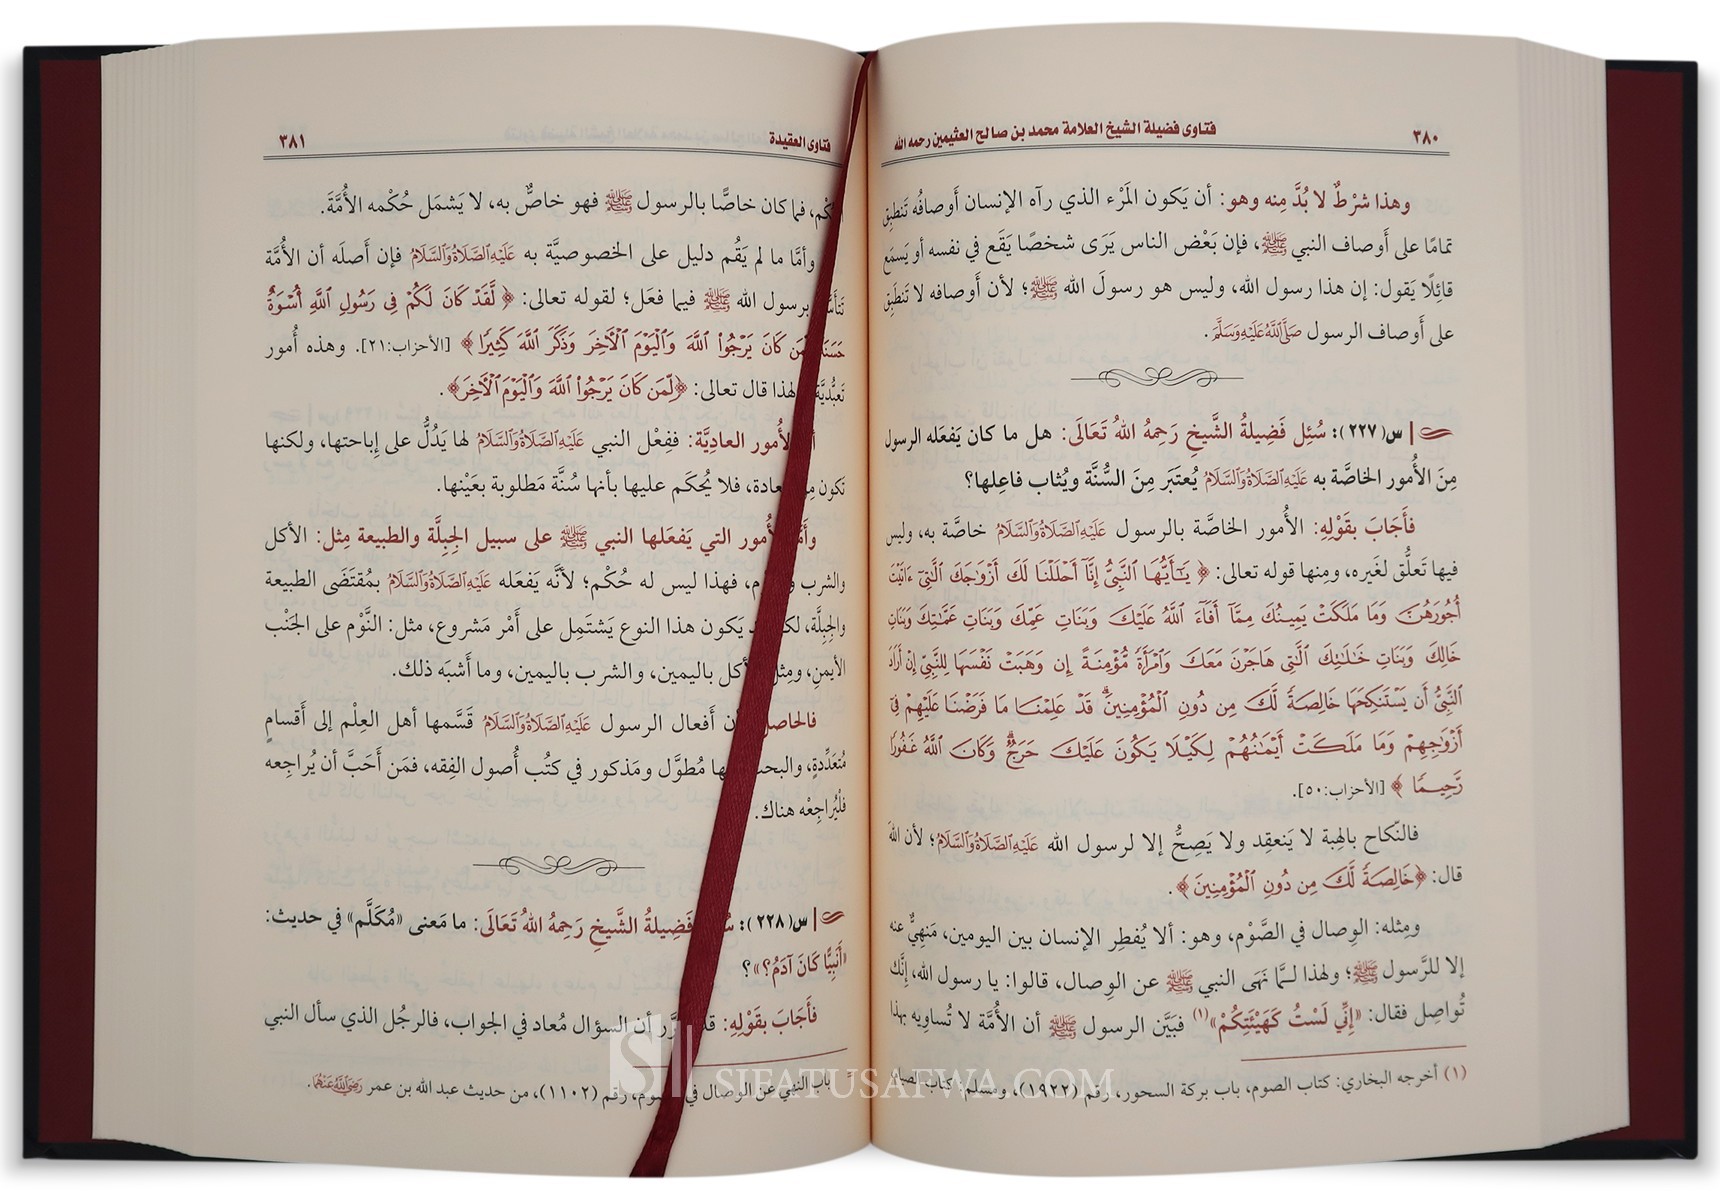 ٣٨٠
فتاوى فضيلة الشيخ العلامة محمد بن صالح العثيمين رحمه الله
وهذا شرْطٌ لا بُدَّ مِنه وهو: أن يَكون المَرْء الذي رآه الإنسان أَوصافُه تَنطبِق
تمامًا على أَوصاف النبي ﷺ، فإن بَعْض الناس يَرَى شخصًا يَقَع في نفسه أو يَسمَع
قائِلًا يَقول: إن هذا رسول الله، وليس هو رسولَ الله ﷺ؛ لأن أَوصافه لا تَنطَبِق
على أَوصاف الرسول صَلَّى اللَّهُ عَلَيْهِ وَسَلَّمَ.
س (٢٢٧): سُئِل فَضِيلةُ الشَّيخِ رَحِمهُ اللهُ تَعَالَى: هل ما كان يَفعَله الرسول
مِنَ الأُمور الخاصَّة به عَلَيْهِ الصَّلَاةُ وَالسَّلَامُ يُعتبَر مِنَ السُّنَّة ويُثاب فاعِلها؟
فأَجَابَ بقَوْلِهِ: الأُمور الخاصَّة بالرسول عَلَيْهِ الصَّلَاةُ وَالسَّلَامُ خاصَّة به، وليس
فيها تَعلُّق لغَيره، ومِنها قوله تعالى: ﴿ يَـٰٓأَيُّهَا ٱلنَّبِىُّ إِنَّآ أَحْلَلْنَا لَكَ أَزْوَٰجَكَ ٱلَّـٰتِىٓ ءَاتَيْتَ
أُجُورَهُنَّ وَمَا مَلَكَتْ يَمِينُكَ مِمَّآ أَفَآءَ ٱللَّهُ عَلَيْكَ وَبَنَاتِ عَمِّكَ وَبَنَاتِ عَمَّـٰتِكَ وَبَنَاتِ
خَالِكَ وَبَنَاتِ خَـٰلَـٰتِكَ ٱلَّـٰتِى هَاجَرْنَ مَعَكَ وَٱمْرَأَةً مُّؤْمِنَةً إِن وَهَبَتْ نَفْسَهَا لِلنَّبِىِّ إِنْ أَرَادَ
ٱلنَّبِىُّ أَن يَسْتَنكِحَهَا خَالِصَةً لَّكَ مِن دُونِ ٱلْمُؤْمِنِينَ ۗ قَدْ عَلِمْنَا مَا فَرَضْنَا عَلَيْهِمْ فِىٓ
أَزْوَٰجِهِمْ وَمَا مَلَكَتْ أَيْمَـٰنُهُمْ لِكَيْلَا يَكُونَ عَلَيْكَ حَرَجٌ ۗ وَكَانَ ٱللَّهُ غَفُورًا
رَّحِيمًا ﴾ [الأحزاب:٥٠].
فالنّكاح بالهِبة لا يَنعقِد ولا يَصِحُّ إلا لرسول الله عَلَيْهِ الصَّلَاةُ وَالسَّلَامُ؛ لأن اللهَ
قال: ﴿خَالِصَةً لَّكَ مِن دُونِ ٱلْمُؤْمِنِينَ﴾.
ومِثله: الوِصال في الصَّوْم، وهو: ألا يُفطِر الإنسان بين اليومين، مَنهِيٌّ عنه
إلا للرَّسول ﷺ؛ ولهذا لـمَّا نَهَى النبي ﷺ عن الوِصال، قالوا: يا رسول الله، إنَّك
تُواصِل فقال: «إِنِّي لَسْتُ كَهَيْئَتِكُمْ»(١) فبَيَّن الرسول ﷺ أن الأُمَّة لا تُساوِيه بهذا
(١) أخرجه البخاري: كتاب الصوم، باب بركة السحور، رقم (١٩٢٢)، ومسلم: كتاب الصيام،
فتاوى العقيدة
٣٨١
الحُكْم، فما كان خاصًّا بالرسول ﷺ فهو خاصٌّ به، لا يَشمَل حُكْمه الأُمَّةَ.
وأمَّا ما لم يَقُم دليل على الخصوصيَّة به عَلَيْهِ الصَّلَاةُ وَالسَّلَامُ فإن أَصلَه أن الأُمَّة
تَتأَسَّى برسول الله ﷺ فيما فعَل؛ لقوله تعالى: ﴿ لَّقَدْ كَانَ لَكُمْ فِى رَسُولِ ٱللَّهِ أُسْوَةٌ
حَسَنَةٌ لِّمَن كَانَ يَرْجُوا۟ ٱللَّهَ وَٱلْيَوْمَ ٱلْـَٔاخِرَ وَذَكَرَ ٱللَّهَ كَثِيرًا ﴾ [الأحزاب:٢١]. وهذه أُمور
تَعبُّديَّة لهذا قال تعالى: ﴿لِّمَن كَانَ يَرْجُوا۟ ٱللَّهَ وَٱلْيَوْمَ ٱلْـَٔاخِرَ﴾.
الأُمور العاديَّة: ففِعْل النبي عَلَيْهِ الصَّلَاةُ وَالسَّلَامُ لها يَدُلُّ على إِباحتها، ولكنها
تَكون العادة، فلا يُحكَم عليها بأنها سُنَّة مَطلوبة بعَيْنها.
وأَمَّا الأُمور التي يَفعَلها النبي ﷺ على سبيل الجِبِلَّة والطبيعة مِثل: الأكل
والشرب والنوم، فهذا ليس له حُكْم؛ لأنَّه يَفعَله عَلَيْهِ الصَّلَاةُ وَالسَّلَامُ بمُقتَضَى الطبيعة
والجِبِلَّة، لكن قد يَكون هذا النوع يَشتَمِل على أَمْر مَشروع، مثل: النَّوْم على الجَنْب
الأيمن، ومِثل الأكل باليمين، والشرب باليمين، وما أَشبَه ذلك.
فالحاصل أن أَفعال الرسول عَلَيْهِ الصَّلَاةُ وَالسَّلَامُ قَسَّمها أهل العِلْم إلى أَقسامٍ
مُتعَدِّدةٍ، والبحث فيها مُطوَّل ومَذكور في كتُب أُصول الفِقه، فمَن أَحَبَّ أن يُراجِعه
فلْيُراجِعْه هناك.
س (٢٢٨): سُئِل فَضِيلةُ الشَّيخِ رَحِمهُ اللهُ تَعَالَى: ما مَعنى «مُكَلَّم» في حديث:
«أَنَبِيًّا كَانَ آدَمُ؟»؟
فأَجَابَ بقَوْلِهِ: أن السؤال مُعاد في الجواب، فالرجُل الذي سأل النبي
= باب النهي عن الوصال في الصوم، رقم (١١٠٢)، من حديث عبد الله بن عمر رَضِيَ اللَّهُ عَنْهُمَا.
SIFATUSAFWA.COM